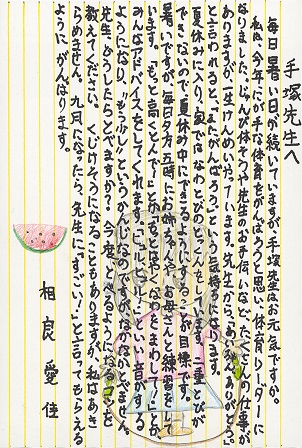 手塚先生へ
毎日暑い日が続いていますが、手塚先生はお元気ですか。
私は、今年にがてな体育をがんばろうと思い、体育リーダーに
なりました。じゅんび体そうや先生のお手伝いなど、たくさんの仕事が
ありますが、一生けんめいやっています。先生から、「ありがとう」
と言われると、「またがんばろう」という気持ちになります。
夏休みに入り、家ではなわとびの
できないので、夏休み中にできるようになることが目標です。
暑いですが、毎日夕方五時にお姉ちゃんやお母さんと練習をして
います。「もっと高くとんで！」とか「もっとはやくなわをまわして！」とか、
みんながアドバイスをしてくれます。「ヒュルヒュル」といい音がする
ようになり、「もう少し」というかんじなのですが、なかなかとべません。
先生、どうしたらとべますか？今度、とべるようになるコツを
教えてください。くじけそうになることもありますが、私はあき
らめません。九月になったら、先生に「すごい！」と言ってもらえる
ようにがんばります。
相良愛佳